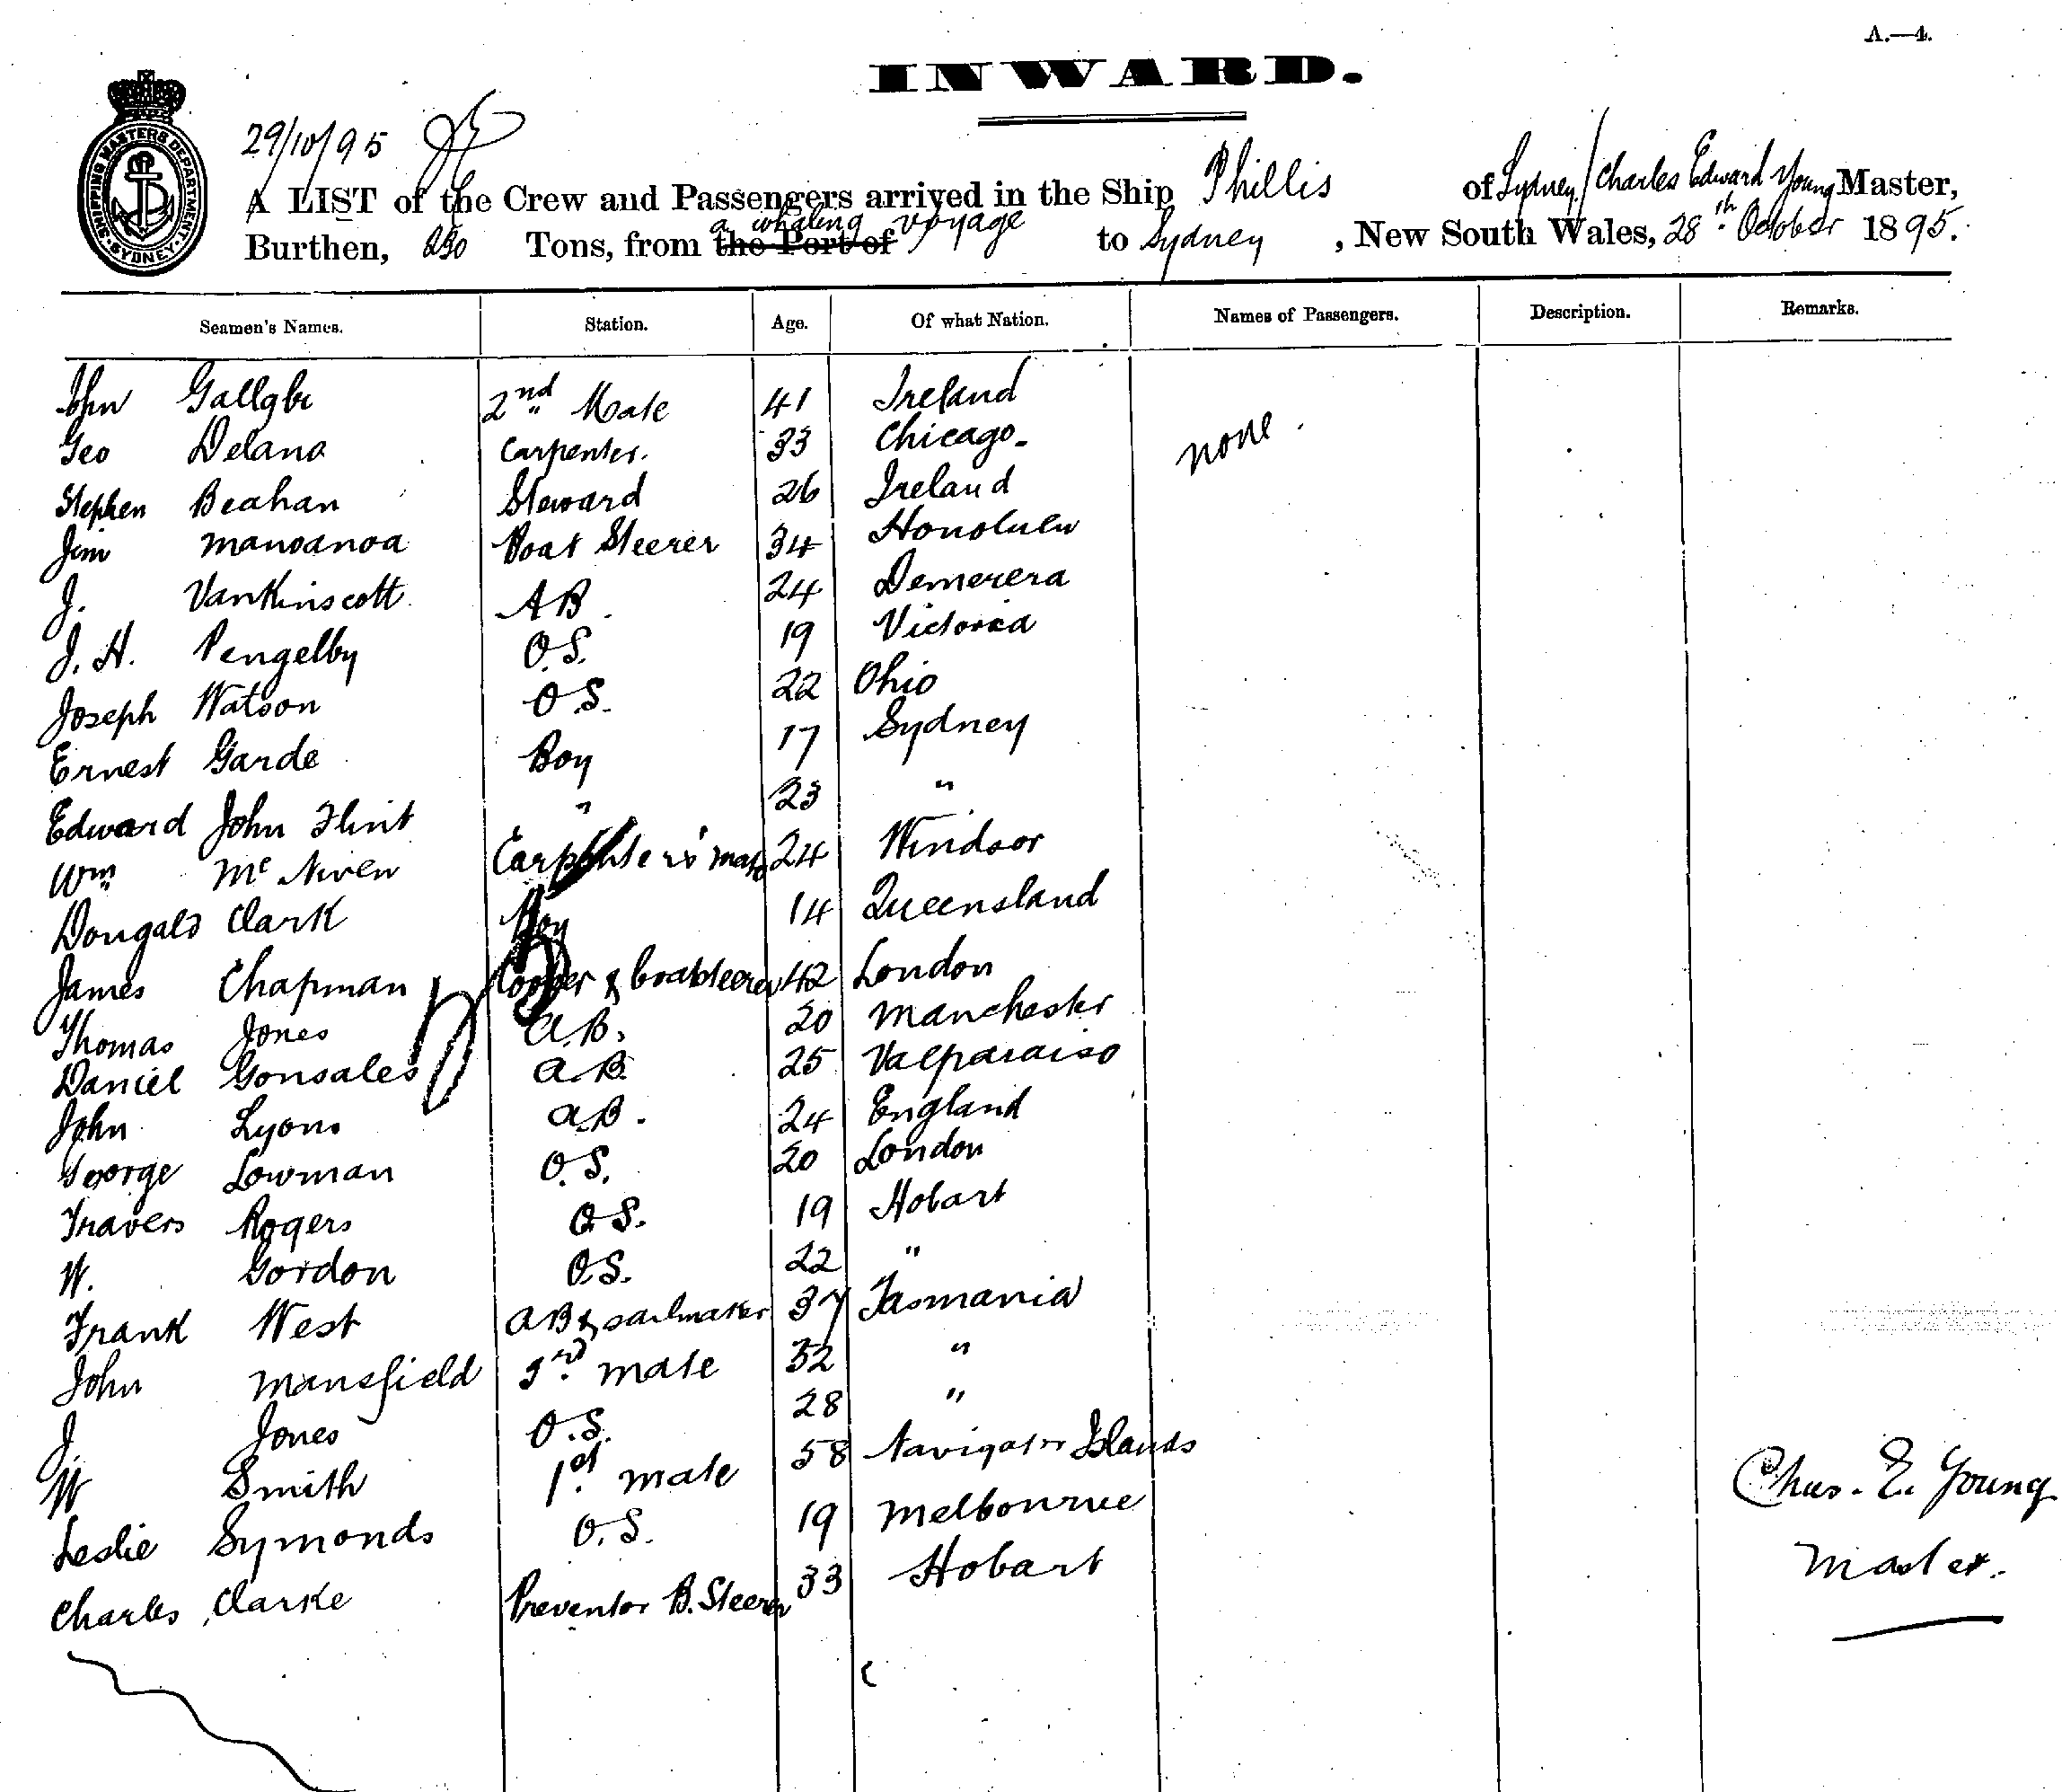 A.—4.
INWARD.
SHIPPING MASTERS DEPARTMENT. SYDNEY.
29/10/95
A LIST of the Crew and Passengers arrived in the Ship Phillis of Sydney / Charles Edward Young Master,
Burthen, 290 Tons, from the Port of a whaling voyage to Sydney, New South Wales, 28th October 1895.
Seamen's Names. Station. Age. Of what Nation. Names of Passengers. Description. Remarks.
John 2nd Mate 41 Ireland
Geo Delana Carpenter. 33 Chicago. none.
Stephen Beahan Steward 26 Ireland
Jim Manoanoa Boat Steerer 34 Honolulu
J. VanKinscott AB. 24 Demerera
J. H. Pengelby O.S. 19 Victoria
Joseph Watson O.S. 22 Ohio
Ernest Garde Boy 17 Sydney
Edward John Flint " 23 "
Wm Mc Niven Carpenter's mate 24 Windsor
Dougald Clark Boy 14 Queensland
James Chapman Cooper & boatsteerer 42 London
Thomas Jones A.B. 20 Manchester
Daniel Gonsales A.B. 25 Valparaiso
John Lyons A.B. 24 England
George Lowman O.S. 20 London
Travers Rogers O.S. 19 Hobart
W. Gordon O.S. 22 "
Frank West AB & sailmaker 37 Tasmania
John Mansfield 3rd mate 32 "
J. Jones O.S. 28 "
W Smith 1st mate 58 Navigator Islands
Leslie Symonds O.S. 19 Melbourne
Charles Clarke Preventor B. Steerer 33 Hobart
Chas. E. Young
Master.